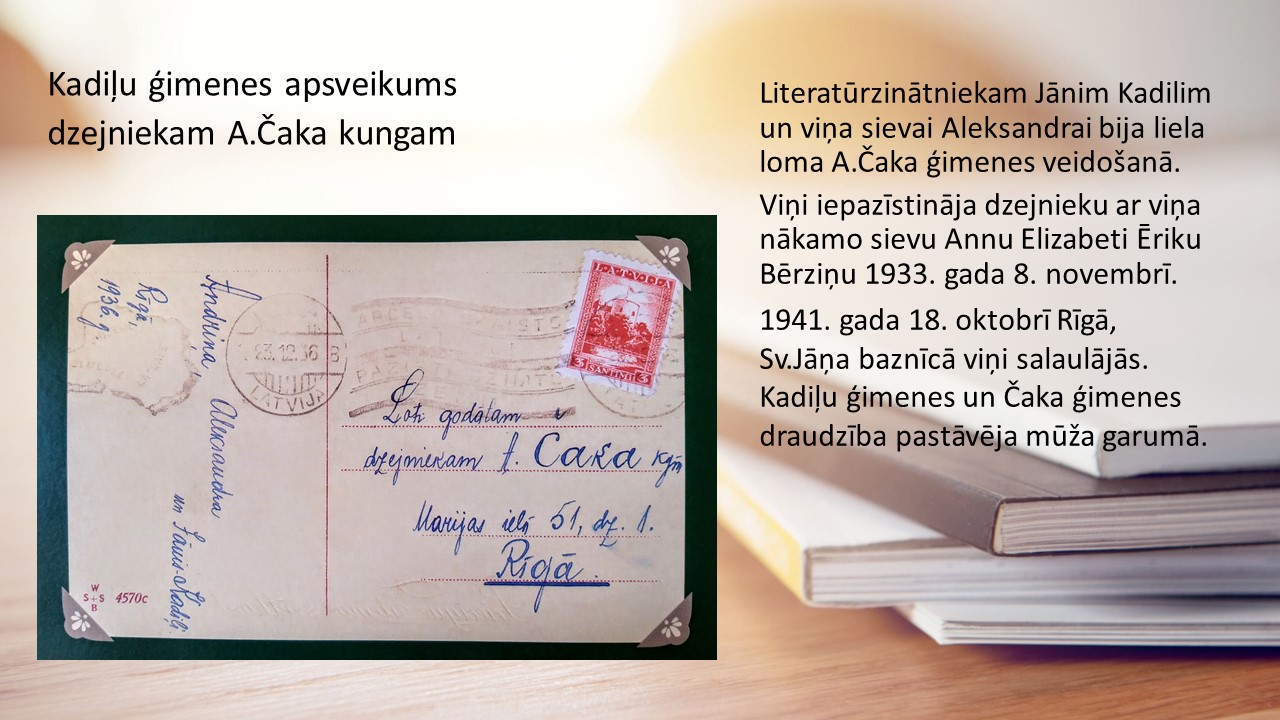 Kadiļu ģimenes apsveikums
dzejniekam A.Čaka kungam
Literatūrzinātniekam Jānim Kadilim
un viņa sievai Aleksandrai bija liela
loma A.Čaka ģimenes veidošanā.
Viņi iepazīstināja dzejnieku ar viņa
nākamo sievu Annu Elizabeti Ēriku
Bērziņu 1933. gada 8. novembrī.
1941. gada 18. oktobrī Rīgā,
Sv.Jāņa baznīcā viņi salaulājās.
Kadiļu ģimenes un Čaka ģimenes
draudzība pastāvēja mūža garumā.
Rīgā,
1936. g
Andriņa,
Aleksandra
un Jānis Kadiļi
23.12.36 B
LATVIJA
LATVIJA
3 SANTIMI 3
Ļoti godātam
dzejniekam A. Čaka kgm
Marijas ielā 51, dz. 1.
Rīgā.
W
S+S
B
4570c